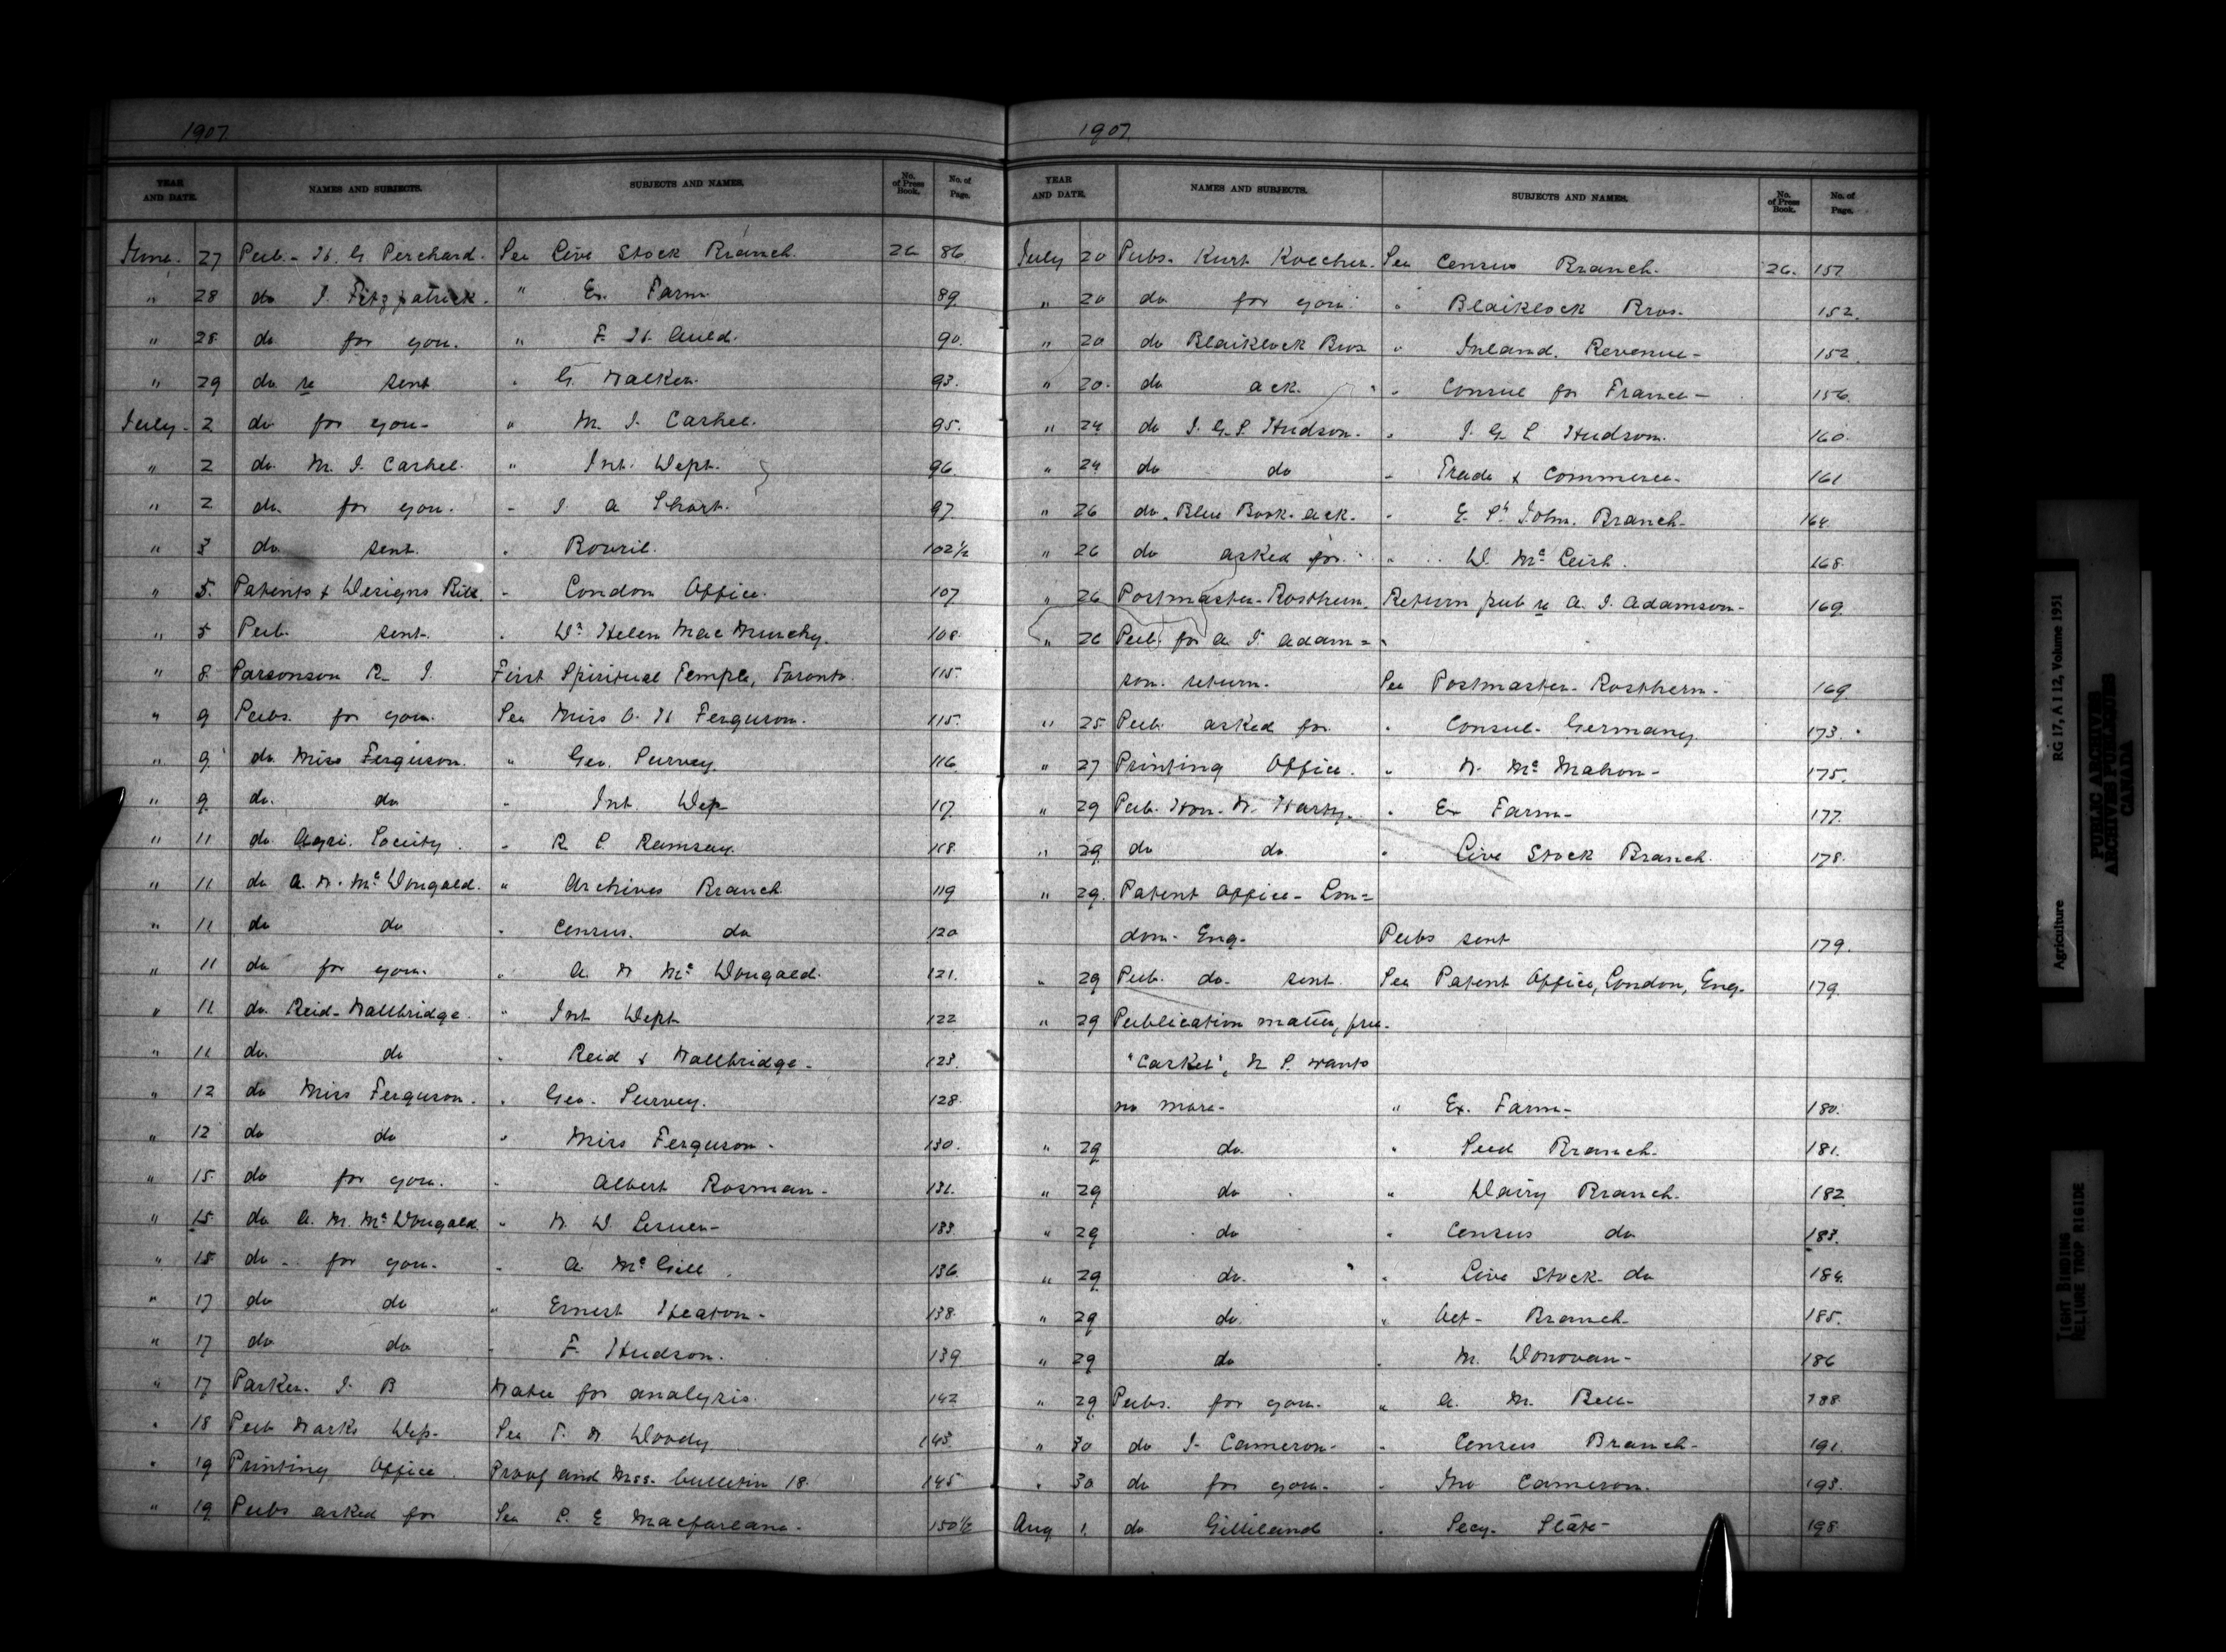 1907.
YEAR AND DATE. NAMES AND SUBJECTS. SUBJECTS AND NAMES. No. of Press Book. No. of Page.
June. 27 Pub. - H. G. Perchard. See Live Stock Branch. 26 86.
" 28 do J. Fitzpatrick. " Ex. Farm. 89.
" 28 do for you. " F. H. Auld. 90.
" 29 do re sent " G. Walker. 93.
July - 2 do for you - " M. J. Cashel. 95.
" 2 do. M. J. Cashel. " Int. Dept. 96.
" 2 do. for you. " J A Short. 97.
" 3 do. sent. " Bovril. 102 1/2
" 5. Patents & Designs Bill. " London Office. 107
" 5 Pub. sent. " Dr Helen Mac Murchy. 108.
" 8. Parsonson R. J. First Spiritual Temple, Toronto. 115.
" 9 Pubs. for you. See Miss C. H Ferguson. 115.
" 9 do. Miss Ferguson. " Geo. Survey. 116.
" 9. do. do " Int Dep- 117.
" 11 do. Agri. Society. " R. S. Ramsay. 118.
" 11 do A. W. McDougald. " Archives Branch 119
" 11 do do " Census. do 120
" 11 do for you. " A. W McDougald. 121.
" 11 do. Reid - Wallbridge. " Int Dept 122
" 11 do. do " Reid & Wallbridge - 123.
" 12 do Miss Ferguson. " Geo. Survey. 128.
" 12 do do " Miss Ferguson. 130.
" 15. do for you. " Albert Rosman. 131.
" 15. do A. M. McDougald " W. D. 133.
" 15 do. for you. " A. McGill. 136.
" 17 do do " Ernest Heaton - 138.
" 17 do do " F. Hudson. 139
" 17 Parker. J. B Water for analysis. 142
" 18 Pub Marks Dep- See T. W. Doody 143.
" 19 Printing Office. Proof and Mss. bulletin 18. 145
" 19 Pubs asked for See C. E Macfarlane. 150 1/2
1907.
YEAR AND DATE. NAMES AND SUBJECTS. SUBJECTS AND NAMES. No. of Press Book. No. of Page.
July 20 Pubs. Kurt Koecher. See Census Branch. 26. 151.
" 20 do for you. " Blaiklock Bros. 152.
" 20 do Blaiklock Bros " Inland. Revenue - 152.
" 20. do ack. " Consul for France - 156.
" 24 do J. G. S. Hudson. " J. G. S Hudson. 160.
" 24 do do " Trade & Commerce. 161
" 26 do. Blue Book. ack. " St. John. Branch - 164.
" 26 do asked for. " D. McLeish. 168.
" 26 Postmaster - Rosthern. Return pub re A. J. Adamson - 169.
" 26 Pub. for A. J. Adam=
son. return. See Postmaster - Rosthern. 169
" 25 Pub. asked for " Consul - Germany. 173.
" 27 Printing Office. " W. McMahon - 175.
" 29 Pub. Hon. W. Harty. " Ex Farm - 177.
" 29 do do. " Live Stock Branch. 178.
" 29. Patent Office - Lon=
don - Eng. Pubs sent 179.
" 29 Pub. do. sent. See Patent Office, London, Eng. 179.
" 29 Publication matter, free.
"Casket", N. S. wants
no more - " Ex. Farm - 180.
" 29 do. " Seed Branch. 181.
" 29 do. " Dairy Branch. 182
" 29 do " Census do 183.
" 29 do. " Live Stock do 184.
" 29 do. " Vet - Branch - 185.
" 29 do " M. Donovan - 186
" 29 Pubs. for you. " A. M. Bell - 188
" 30 do J. Cameron - " Census Branch - 191.
" 30 do for you. " Jno Cameron. 193.
Aug 1. do Gilliland " Secy. State - 198
Agriculture RG 17, A I 12, Volume 1951
PUBLIC ARCHIVES
ARCHIVES PUBLIQUES
CANADA
TIGHT BINDING
RELIURE TROP RIGIDE